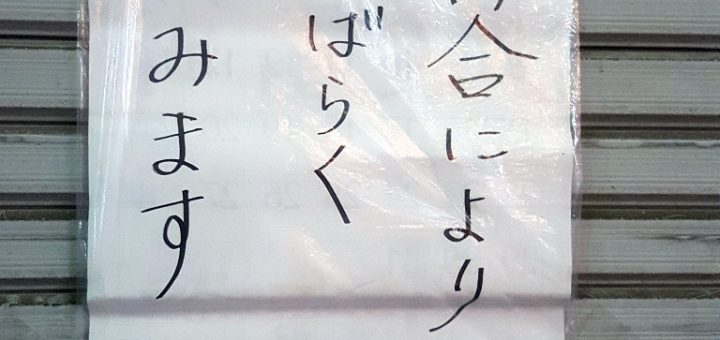 合により
ばらく
みます